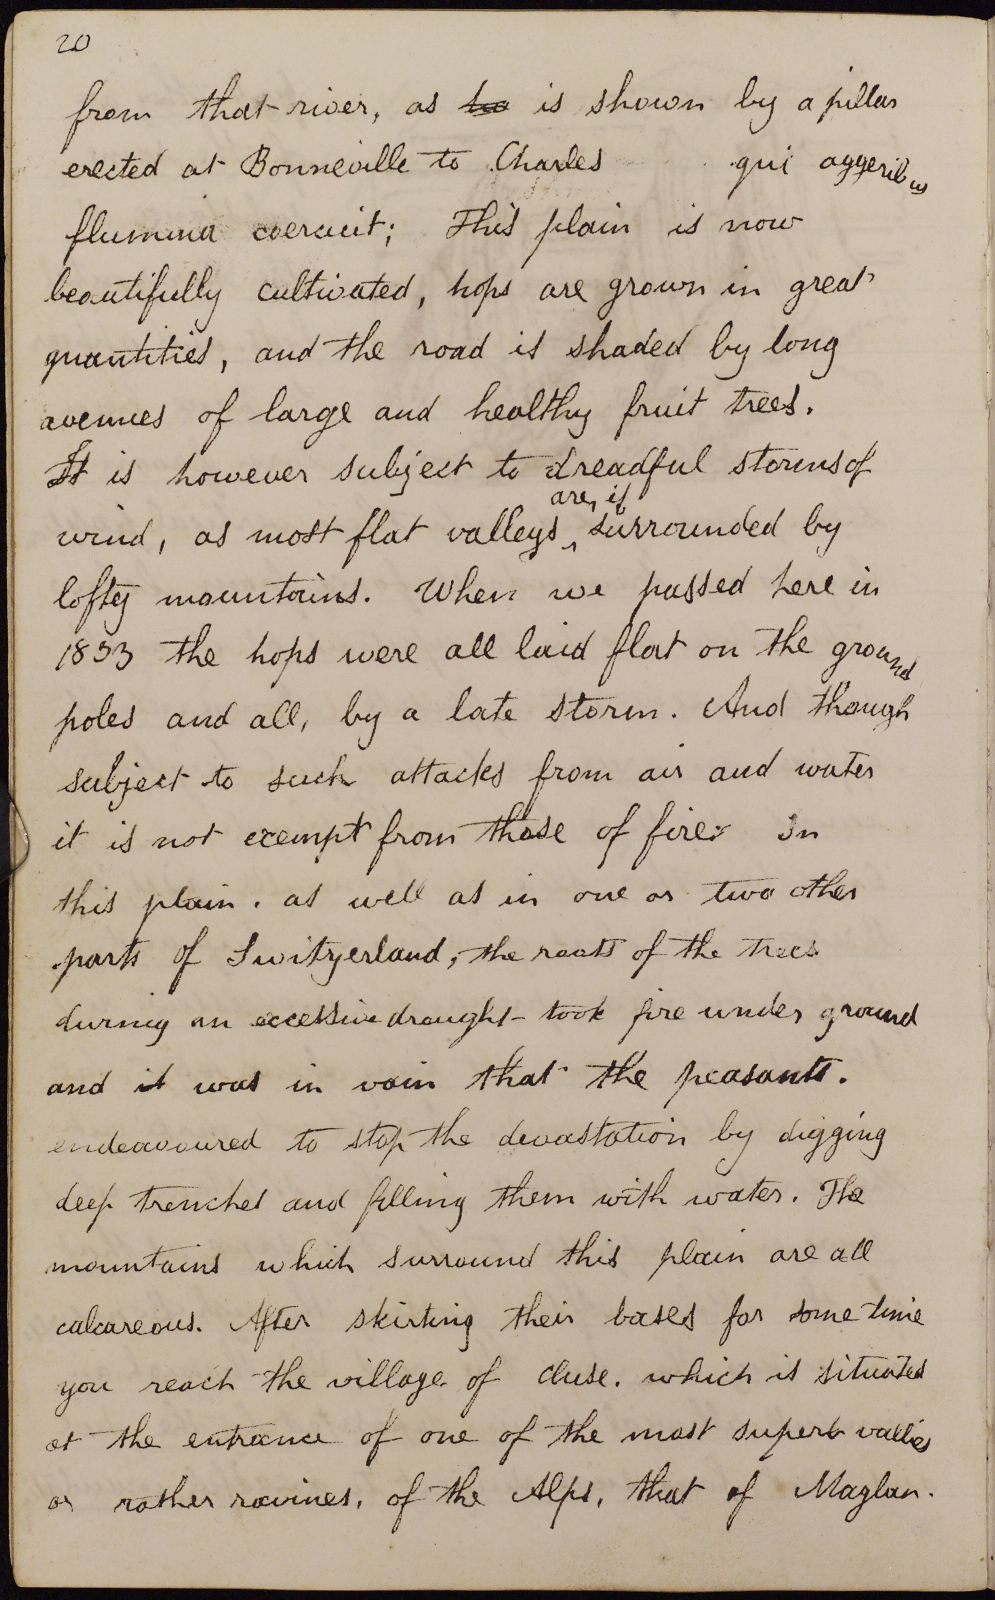 20
from that river, as is shown by a pillar
erected at Bonneville to Charles qui aggeribus
flumina coercuit; This plain is now
beautifully cultivated, hops are grown in great
quantities, and the road is shaded by long
avenues of large and healthy fruit trees.
It is however subject to dreadful storms of
wind, as most flat valleys are, if surrounded by
lofty mountains. When we passed here in
1833 the hops were all laid flat on the ground
poles and all, by a late storm. And though
subject to such attacks from air and water
it is not exempt from those of fire. In
this plain. as well as in one or two other
parts of Switzerland, the roots of the trees
during an excessive drought took fire under ground
and it was in vain that the peasants.
endeavoured to stop the devastation by digging
deep trenches and filling them with water. The
mountains which surround this plain are all
calcareous. After skirting their bases for some time
you reach the village of Cluse. which is situated
at the entrance of one of the most superb vallies
or rather ravines, of the Alps, that of Maglan.